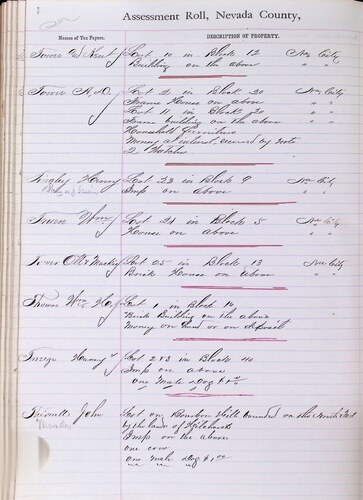 Assessment Roll, Nevada County,
Names of Tax Payers.
DESCRIPTION OF PROPERTY.
Tower & Kent Lot 10 in Block 12 Nev City
Building on the above " "
Tower A. D. Lot 2 in Block 20 Nev City
Frame House on above " "
Lot 11 in Block 20 " "
Frame building on the above " "
Household furniture
Money at interest secured by note
2 Watches
Tingley Henry Lot 23 in Block 9 Nev City
Imp on above " "
Wm Lot 21 in Block 5 Nev City
House on above " "
Lot 25 in Block 13 Nev City
Brick House on above " "
Thomas Wm H Lot 1 in Block 14
Brick Building on the above
Money on hand or on deposit
Henry Lot 2 & 3 in Block 40
Imp on above
one Male Dog $
John Lot on Bourbon Hill bounded on the North & East
by the lands of
Imps on the above
one cow
one male dog $